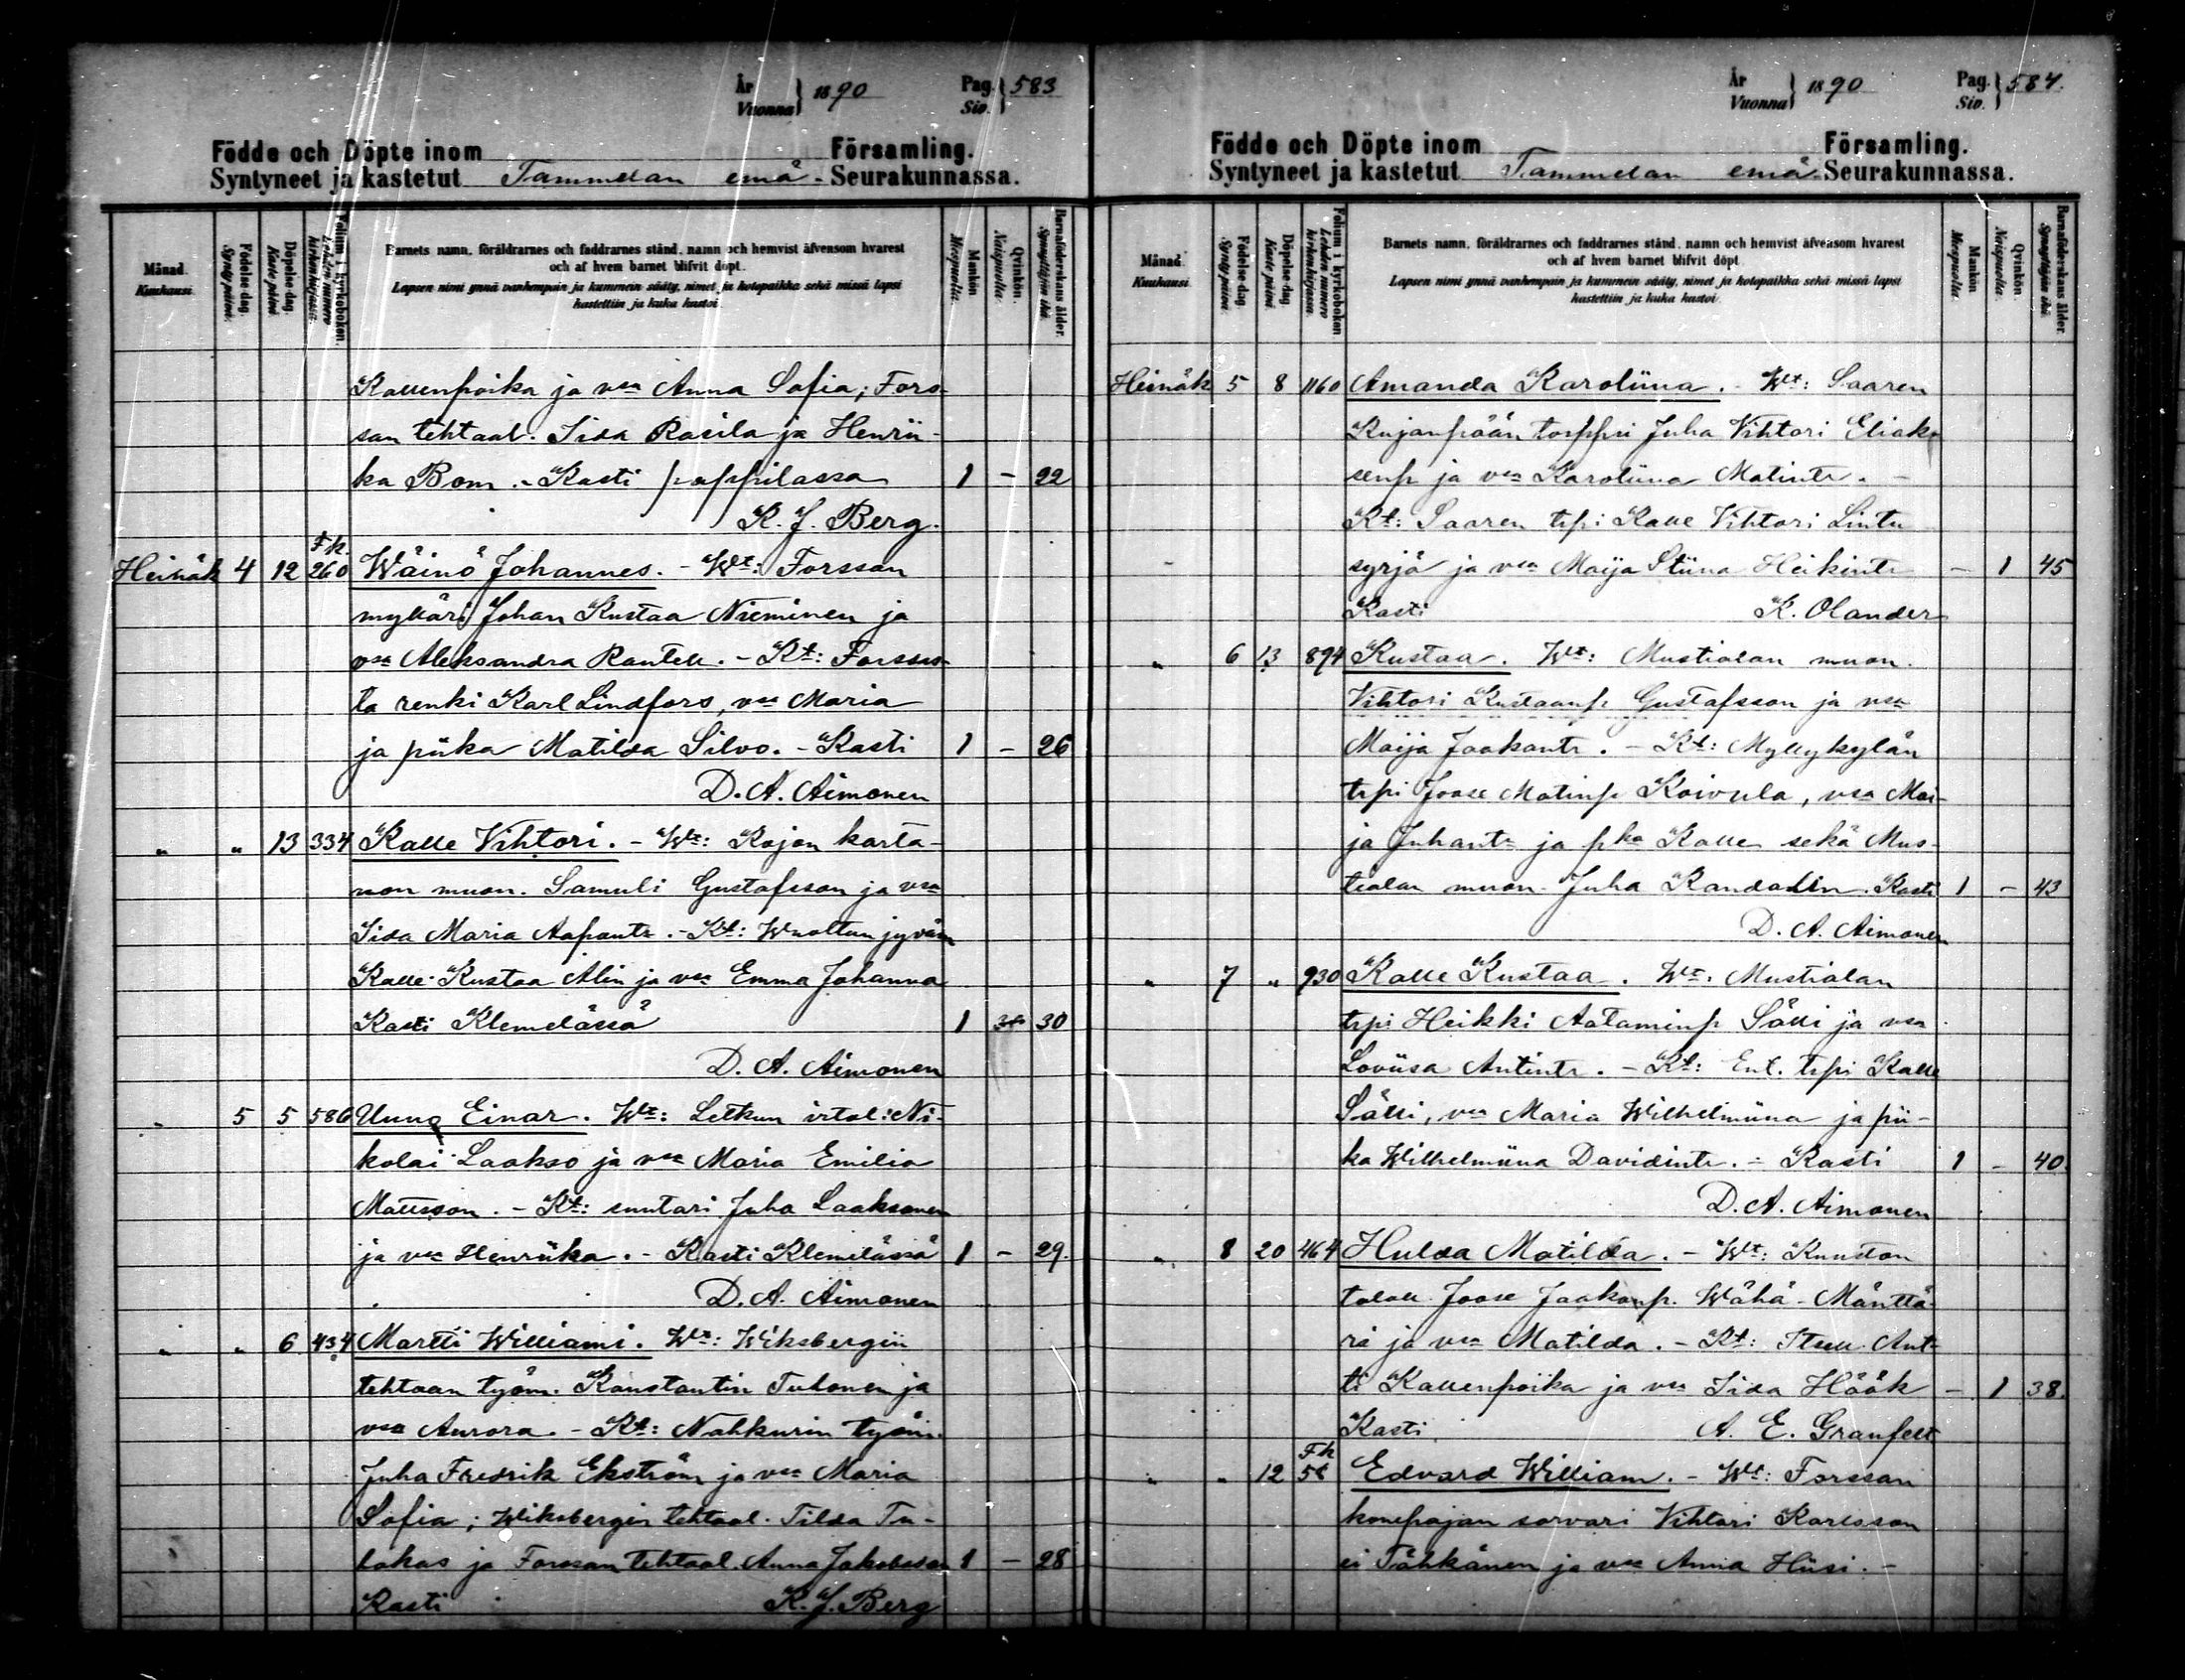 År Vuonna } 1890 Pag. Siv. } 583
Födde och Döpte inom Församling.
Syntyneet ja kastetut Tammelan emä- Seurakunnassa.
Månad. Kuukausi.
Födelse dag. Synty päivä.
Döpelse dag. Kaste päivä.
Folium i kyrkoboken. Lehden numero kirkonkirjassa.
Barnets namn, föräldrarnes och faddrarnes stånd, namn och hemvist äfvensom hvarest
och af hvem barnet blifvit döpt.
Lapsen nimi ynnä vanhempain ja kummein sääty, nimet ja kotopaikka sekä missä lapsi
kastettiin ja kuka kastoi.
Mankön. Miespuolta.
Qvinkön. Naispuolta.
Barnaföderskans ålder. Synnyttäjän ikä.
Kallenpoika ja vsa Anna Sofia; Fors-
san tehtaal. Iida Rasila ja Henrii-
ka Bom. - Kasti pappilassa 1 - 22
K. J. Berg.
Fk.
Heinäk 4 12 260 Wäinö Johannes. - Wt: Forssan
mylläri Johan Kustaa Nieminen ja
vsa Aleksandra Rantell. - Kt: Forssas-
ta renki Karl Lindfors, vsa Maria
ja piika Matilda Silvo. - Kasti 1 - 26
D. A. Aimonen
" " 13 334 Kalle Vihtori. - Wt: Kojon karta-
non muon. Samuli Gustafsson ja vsa
Iida Maria Aapontr. - Kt: Wuoltun jyväm
Kalle Kustaa Alin ja vsa Emma Johanna
Kasti Klemelässä 1 30
D. A. Aimonen
" 5 5 586 Uuno Einar. Wt: Letkun ital: Ni-
kolai Laakso ja vsa Maria Emilia
Mattsson. - Kt: suutari Juha Laaksonen
ja vsa Henriika. - Kasti Klemelässä 1 - 29.
D. A. Aimonen
" " 6 434 Martti Williami. Wt: Wiksbergin
tehtaan työm. Konstantin Tuhonen ja
vsa Aurora. - Kt: Nahkurin työm.
Juha Fredrik Ekström ja vsa Maria
Sofia; Wiksbergin tehtaal. Tilda Tu-
lokas ja Forssan tehtaal. Anna Jakobsson 1 - 28
Kasti K. J. Berg
År Vuonna } 1890 Pag. Siv. } 584.
Födde och Döpte inom Församling.
Syntyneet ja kastetut Tammelan emä- Seurakunnassa.
Månad. Kuukausi.
Födelse-dag. Synty päivä.
Döpelse-dag. Kaste päivä.
Folium i kyrkoboken. Lehden numero kirkonkirjassa.
Barnets namn, föräldrarnes och faddrarnes stånd, namn och hemvist äfvensom hvarest
och af hvem barnet blifvit döpt.
Lapsen nimi ynnä vanhempain ja kummein sääty, nimet ja kotopaikka sekä missä lapsi
kastettiin ja kuka kastoi.
Mankön. Miespuolta.
Qvinkön. Naispuolta.
Barnaföderskans ålder. Synnyttäjän ikä.
Heinäk 5 8 1160 Amanda Karoliina. - Wt: Saaren
Kujanpään torppri Juha Vihtori Eliak-
senp ja vsa Karoliina Matintr. -
Kt: Saaren trpi Kalle Vihtori Lintu
syrjä ja vsa Maija Stiina Heikintr - 1 45
Kasti K. Olander
" 6 13 894 Kustaa. Wt: Mustialan muon.
Vihtori Kustaanp. Gustafsson ja vsa
Maija Jaakontr. - Kt: Myllykylän
trpi Joose Matinp Koivula, vsa Mai-
ja Juhantr ja pka Kalle sekä Mus-
tialan muon. Juha Randalin. Kasti 1 - 43
D. A. Aimonen
" 7 " 930 Kalle Kustaa. Wt: Mustialan
trpi Heikki Aataminp Sälli ja vsa
Loviisa Antintr. - Kt: Ent. trpi Kalle
Sälli, vsa Maria Wilhelmiina ja pii-
ka Wilhelmiina Davidintr. - Kasti 1 - 40.
D. A. Aimonen
" 8 20 464 Hulda Matilda. - Wt: Kuuston
taloll. Joose Jaakonp. Wähä-Mänttä-
ri ja vsa Matilda. - Kt: Itsell. Ant-
ti Kallenpoika ja vsa Iida Höök - 1 38.
Kasti A. E. Granfelt
Fk
" " 12 Edvard William. - Wt: Forssan
konepajan sorvari Vihtori Karlsson
ei Tähkänen ja vsa Anna Hiisi. -